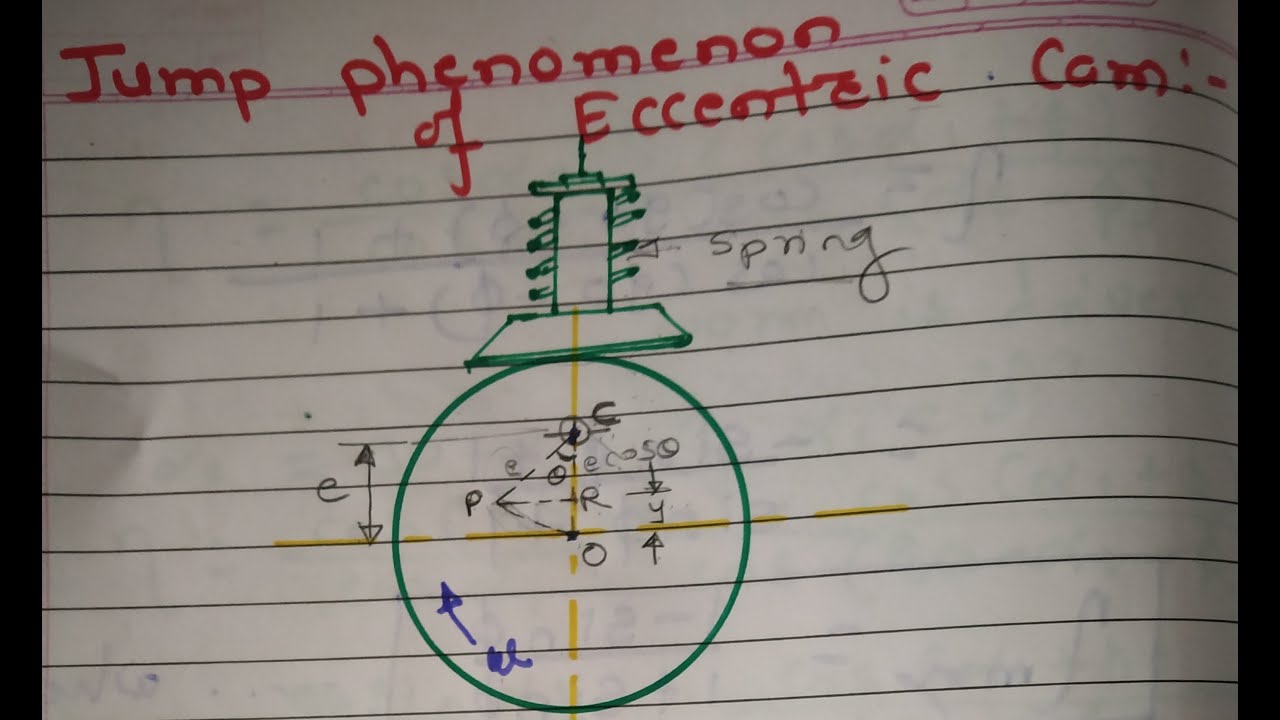 Jump phenomenon
of Eccentric Cam:-
spring
C
e
e
θ
ecosθ
P
R
y
O